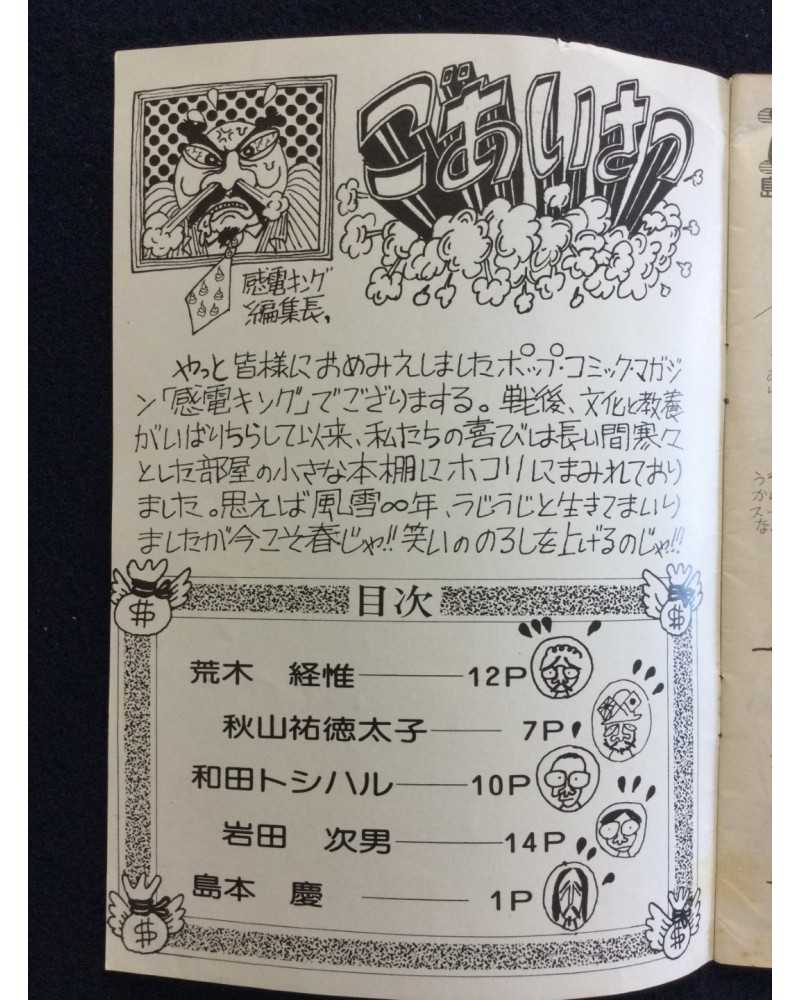 ごあいさつ
感電キング
編集長、
やっと皆様におめみえしましたポップ・コミック・マガジ
ン「感電キング」でござりまする。戦後、文化と教養
がいばりちらして以来、私たちの喜びは長い間寒々
とした部屋の小さな本棚にホコリにまみれており
ました。思えば風雪∞年、うじうじと生きてまいり
ましたが今こそ春じゃ!!笑いののろしを上げるのじゃ!!
目次
荒木 経惟——12P
秋山祐徳太子——7P
和田トシハル——10P
岩田 次男——14P
島本 慶——1P